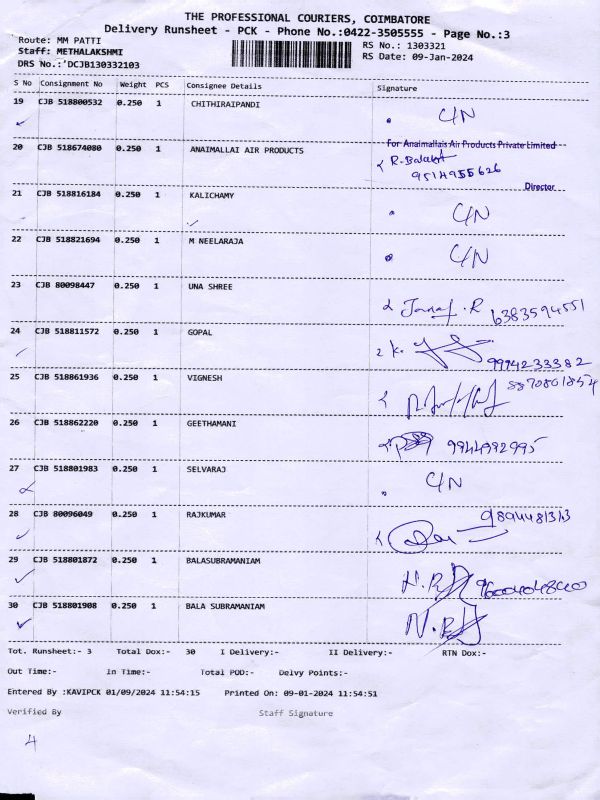 THE PROFESSIONAL COURIERS, COIMBATORE
Delivery Runsheet - PCK - Phone No.:0422-3505555 - Page No.:3
Route: MM PATTI
RS No.: 1303321
Staff: METHALAKSHMI
RS Date: 09-Jan-2024
DRS No.:'DCJB130332103
S No Consignment No Weight PCS Consignee Details Signature
19 CJB 518800532 0.250 1 CHITHIRAIPANDI C/N
For Anaimallais Air Products Private Limited
20 CJB 518674080 0.250 1 ANAIMALLAI AIR PRODUCTS R.
9514955626
Director
21 CJB 518816184 0.250 1 KALICHAMY C/N
22 CJB 518821694 0.250 1 M NEELARAJA C/N
23 CJB 80098447 0.250 1 UNA SHREE 6383594551
24 CJB 518811572 0.250 1 GOPAL K.
9994233382
25 CJB 518861936 0.250 1 VIGNESH
26 CJB 518862220 0.250 1 GEETHAMANI 9944992995
27 CJB 518801983 0.250 1 SELVARAJ C/N
28 CJB 80096049 0.250 1 RAJKUMAR
29 CJB 518801872 0.250 1 BALASUBRAMANIAM
30 CJB 518801908 0.250 1 BALA SUBRAMANIAM
Tot. Runsheet:- 3 Total Dox:- 30 I Delivery:- II Delivery:- RTN Dox:-
Out Time:- In Time:- Total POD:- Delvy Points:-
Entered By :KAVIPCK 01/09/2024 11:54:15 Printed On: 09-01-2024 11:54:51
Verified By Staff Signature
4